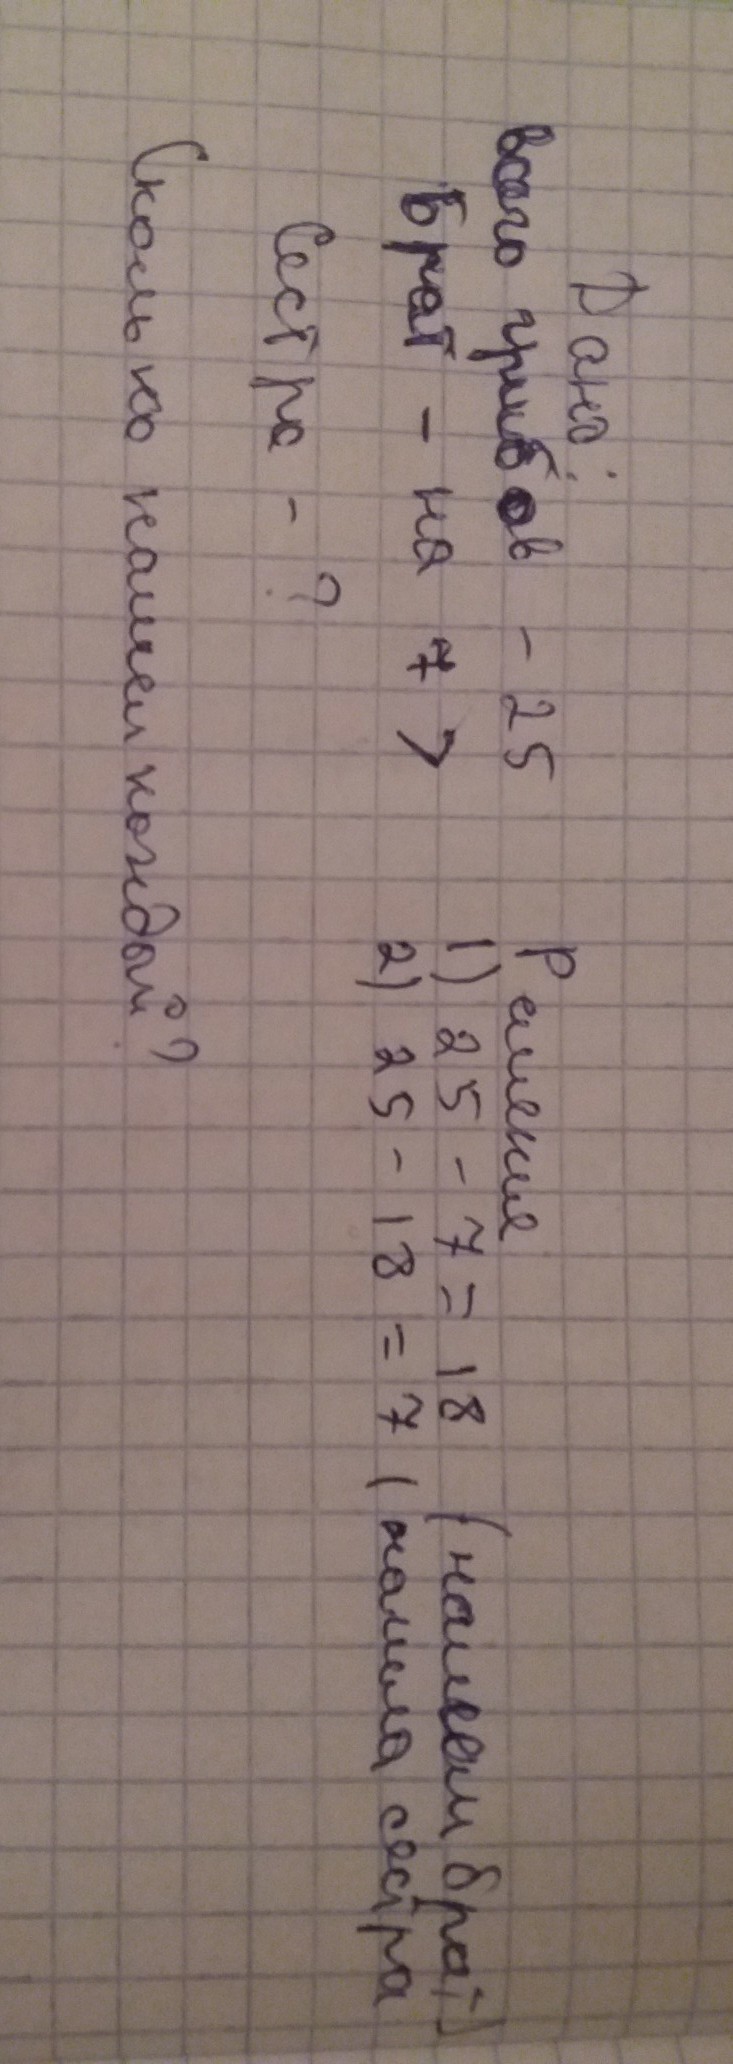 Дано:
всего грибов - 25
Брат - на 7 >
Сестра - ?
Сколько нашел каждый?
Решение
1) 25 - 7 = 18 (нашел брат)
2) 25 - 18 = 7 (нашла сестра